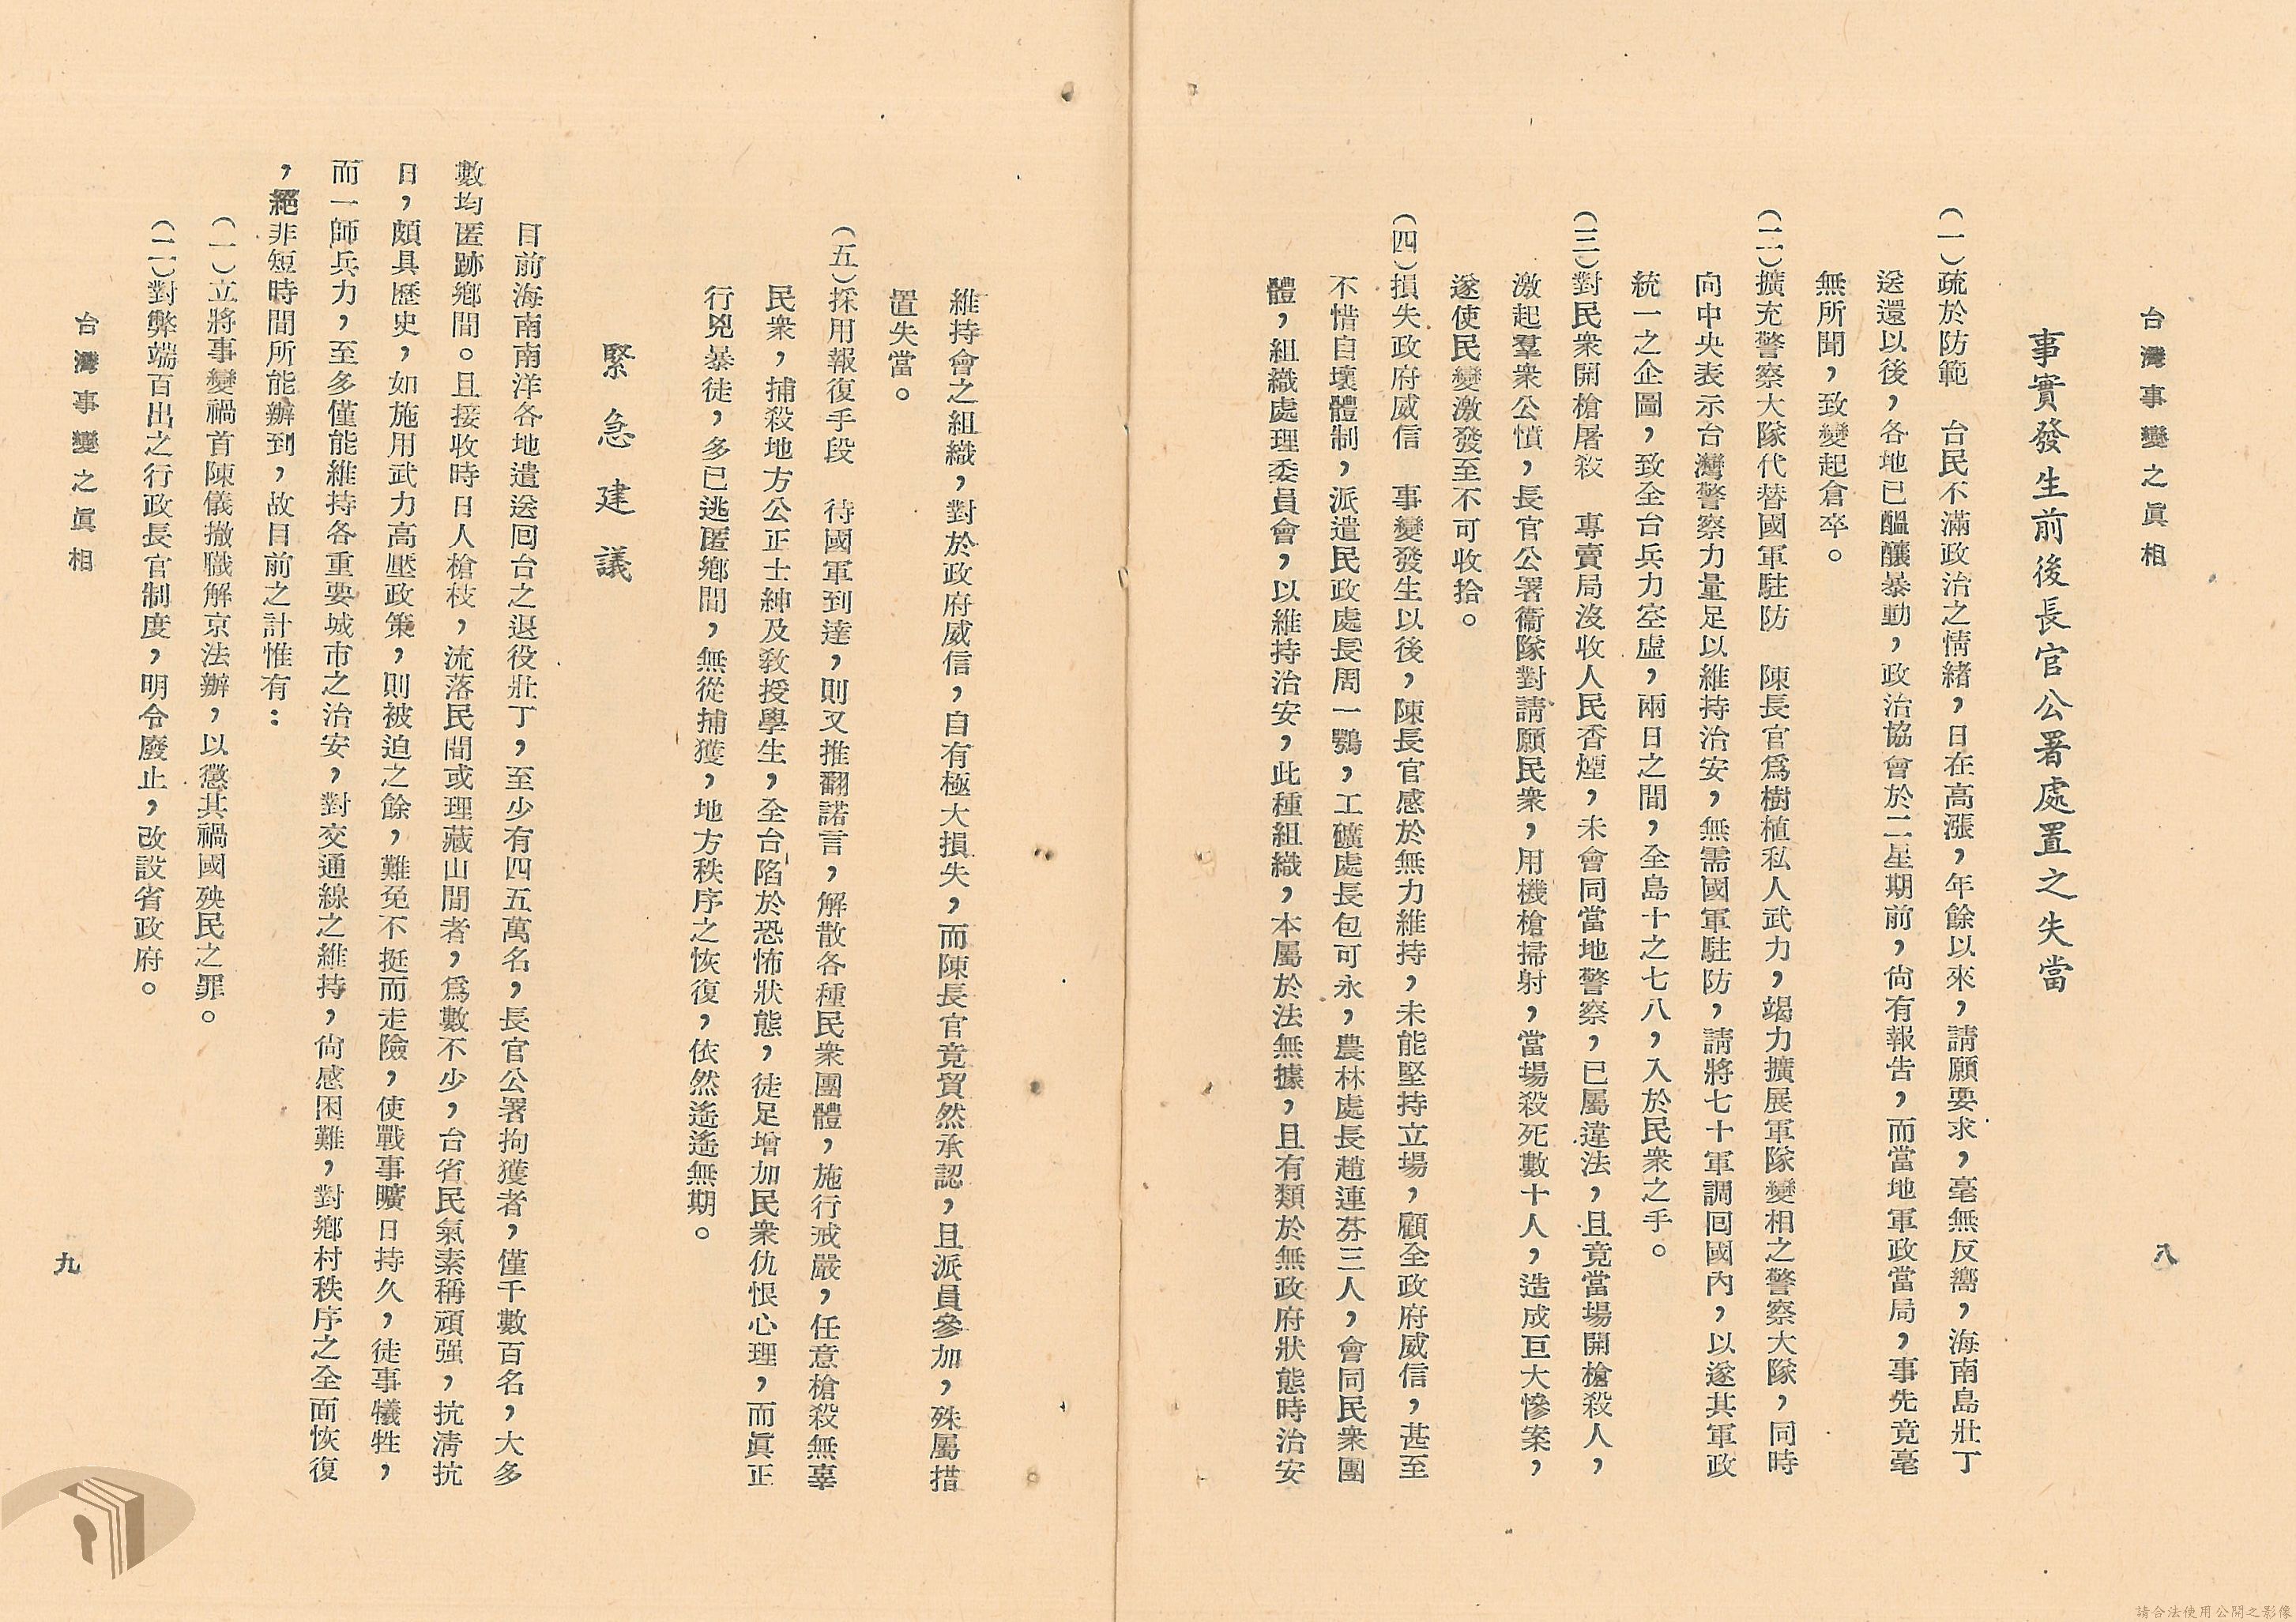 台灣事變之眞相
八
事實發生前後長官公署處置之失當
(一)疏於防範　台民不滿政治之情緒，日在高漲，年餘以來，請願要求，毫無反嚮，海南島壯丁
送還以後，各地已醞釀暴動，政治協會於二星期前，尙有報告，而當地軍政當局，事先竟毫
無所聞，致變起倉卒。
(二)擴充警察大隊代替國軍駐防　陳長官爲樹植私人武力，竭力擴展軍隊變相之警察大隊，同時
向中央表示台灣警察力量足以維持治安，無需國軍駐防，請將七十軍調回國內，以遂其軍政
統一之企圖，致全台兵力空虛，兩日之間，全島十之七八，入於民衆之手。
(三)對民衆開槍屠殺　專賣局沒收人民香煙，未會同當地警察，已屬違法，且竟當場開槍殺人，
激起羣衆公憤，長官公署衞隊對請願民衆，用機槍掃射，當場殺死數十人，造成巨大慘案，
遂使民變激發至不可收拾。
(四)損失政府威信　事變發生以後，陳長官感於無力維持，未能堅持立場，顧全政府威信，甚至
不惜自壞體制，派遣民政處長周一鶚，工礦處長包可永，農林處長趙連芬三人，會同民衆團
體，組織處理委員會，以維持治安，此種組織，本屬於法無據，且有類於無政府狀態時治安
維持會之組織，對於政府威信，自有極大損失，而陳長官竟貿然承認，且派員參加，殊屬措
置失當。
(五)採用報復手段　待國軍到達，則又推翻諾言，解散各種民衆團體，施行戒嚴，任意槍殺無辜
民衆，捕殺地方公正士紳及敎授學生，全台陷於恐怖狀態，徒足增加民衆仇恨心理，而眞正
行兇暴徒，多已逃匿鄕間，無從捕獲，地方秩序之恢復，依然遙遙無期。
緊急建議
目前海南南洋各地遣送回台之退役壯丁，至少有四五萬名，長官公署拘獲者，僅千數百名，大多
數均匿跡鄕間。且接收時日人槍枝，流落民間或理藏山間者，爲數不少，台省民氣素稱頑强，抗淸抗
日，頗具歷史，如施用武力高壓政策，則被迫之餘，難免不挺而走險，使戰事曠日持久，徒事犧牲，
而一師兵力，至多僅能維持各重要城市之治安，對交通線之維持，尙感困難，對鄕村秩序之全面恢復
，絕非短時間所能辦到，故目前之計惟有：
(一)立將事變禍首陳儀撤職解京法辦，以懲其禍國殃民之罪。
(二)對弊端百出之行政長官制度，明令廢止，改設省政府。
台灣事變之眞相
九
請合法使用公開之影像